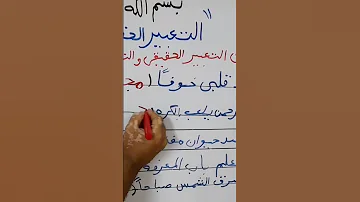 بسم الله
"
التعبير الحق
التعبير الحقيقي والت
قلبي خوفاً ( مج
يلعب بالكرة
حيوان مف
علم باب المعرفة
الشمس صباحاً